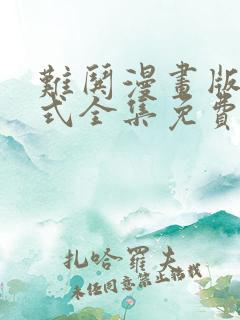 難鬨漫畫版
式全集免費
扎哈羅夫
未经同意禁止转载